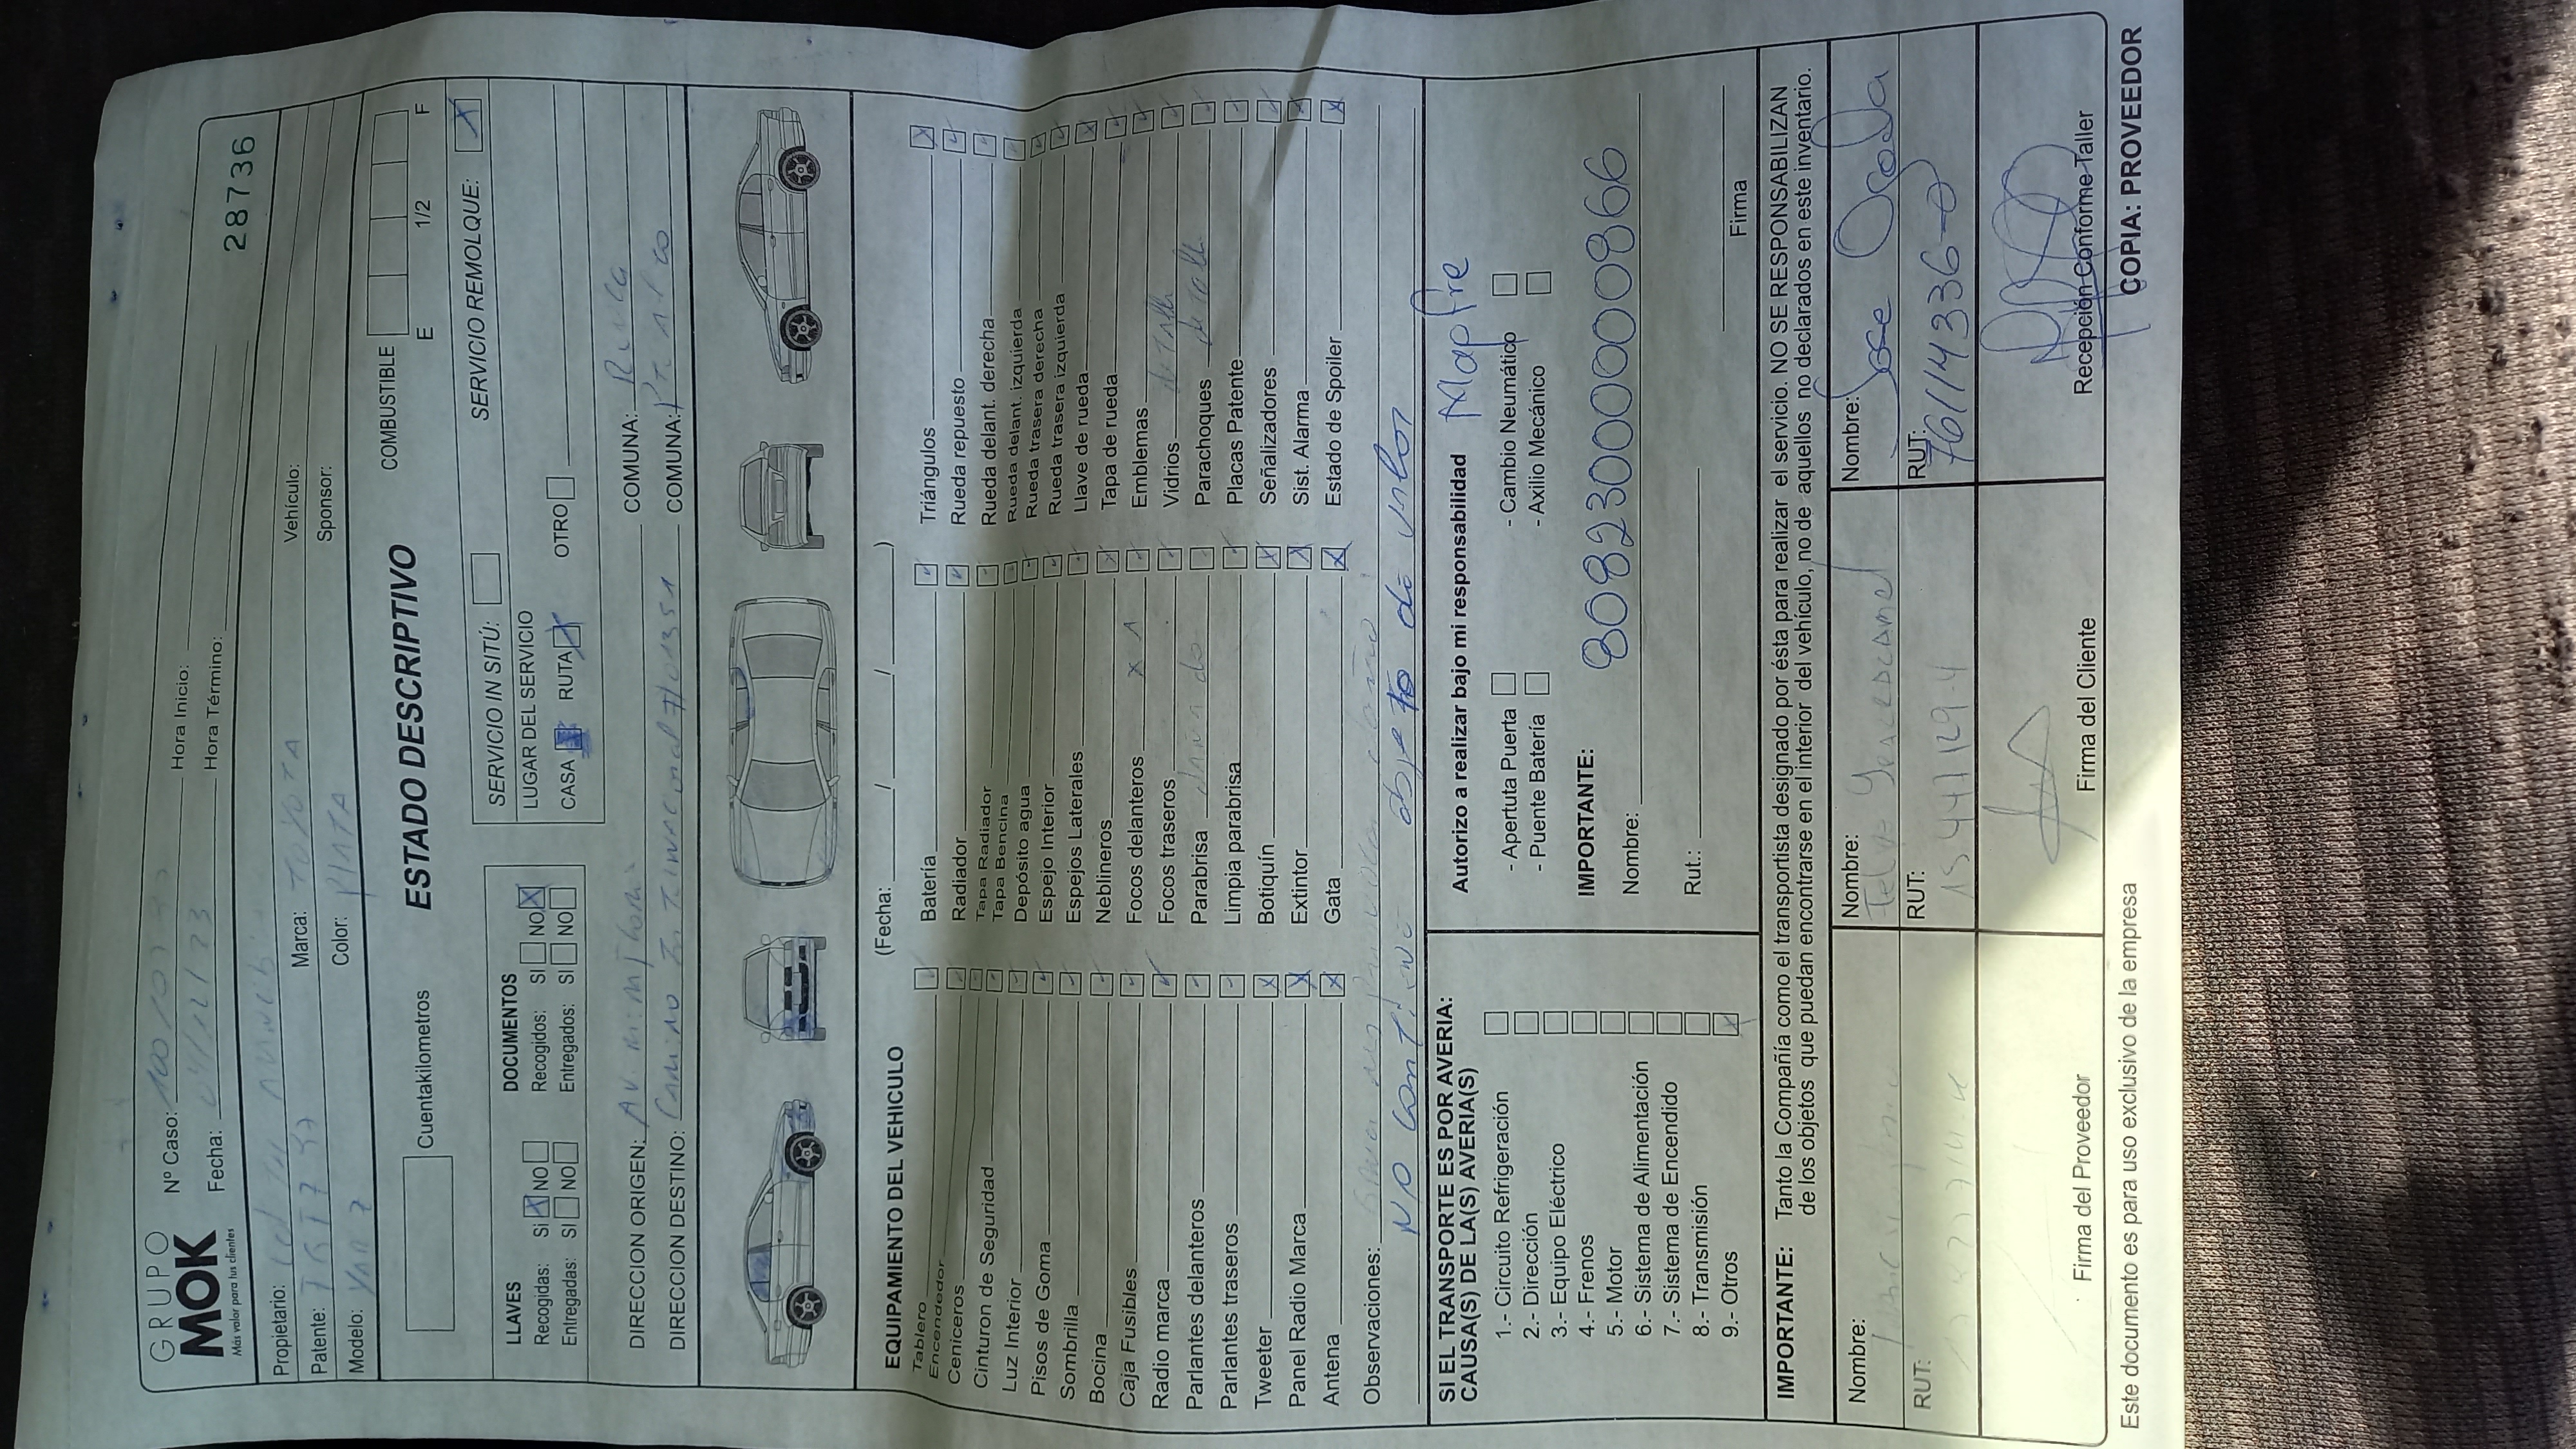 GRUPO
MOK
Más valor para tus clientes
Nº Caso: Hora Inicio:
Fecha: 04/12/23 Hora Término:
28736
Propietario: Vehículo:
Patente: Marca: TOYOTA Sponsor:
Modelo: Color: PLATA
Cuentakilometros
ESTADO DESCRIPTIVO
COMBUSTIBLE
E 1/2 F
LLAVES
Recogidas: Si X NO
Entregadas: SI NO
DOCUMENTOS
Recogidos: SI NO X
Entregados: SI NO
SERVICIO IN SITÚ:
SERVICIO REMOLQUE: X
LUGAR DEL SERVICIO
CASA RUTA X OTRO
DIRECCION ORIGEN: COMUNA:
DIRECCION DESTINO: Camino COMUNA:
EQUIPAMIENTO DEL VEHICULO (Fecha: / / )
Tablero
Encendedor
Ceniceros
Cinturon de Seguridad
Luz Interior
Pisos de Goma
Sombrilla
Bocina
Caja Fusibles
Radio marca
Parlantes delanteros
Parlantes traseros
Tweeter X
Panel Radio Marca X
Antena X
Batería
Radiador
Tapa Radiador
Tapa Bencina
Depósito agua
Espejo Interior
Espejos Laterales
Neblineros
Focos delanteros x 1
Focos traseros
Parabrisa
Limpia parabrisa
Botiquín X
Extintor X
Gata X
Triángulos X
Rueda repuesto
Rueda delant. derecha
Rueda delant. izquierda
Rueda trasera derecha
Rueda trasera izquierda
Llave de rueda X
Tapa de rueda
Emblemas
Vidrios detalle
Parachoques detalle
Placas Patente
Señalizadores
Sist. Alarma X
Estado de Spoiler X
Observaciones:
No contiene objeto de valor
SI EL TRANSPORTE ES POR AVERIA:
CAUSA(S) DE LA(S) AVERIA(S)
1.- Circuito Refrigeración
2.- Dirección
3.- Equipo Eléctrico
4.- Frenos
5.- Motor
6.- Sistema de Alimentación
7.- Sistema de Encendido
8.- Transmisión
9.- Otros X
Autorizo a realizar bajo mi responsabilidad Mapfre
- Apertuta Puerta - Cambio Neumático
- Puente Batería - Axilio Mecánico
IMPORTANTE: 808230000000866
Nombre:
Rut.: Firma
IMPORTANTE: Tanto la Compañía como el transportista designado por ésta para realizar el servicio. NO SE RESPONSABILIZAN
de los objetos que puedan encontrarse en el interior del vehículo, no de aquellos no declarados en este inventario.
Nombre:
RUT:
Firma del Proveedor
Nombre:
RUT:
Firma del Cliente
Nombre: Jose
RUT:
Recepción Conforme Taller
Este documento es para uso exclusivo de la empresa
COPIA: PROVEEDOR